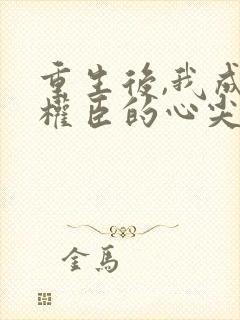 重生後,我成
權臣的心尖
金馬